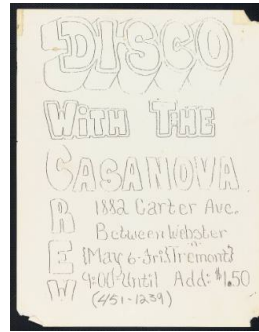 DISCO
WITH THE
CASANOVA
REW
1882 Carter Ave.
Between Webster
{May 6-Fri} Tremont}
9:00 Until Add: $1.50
(451-1239)